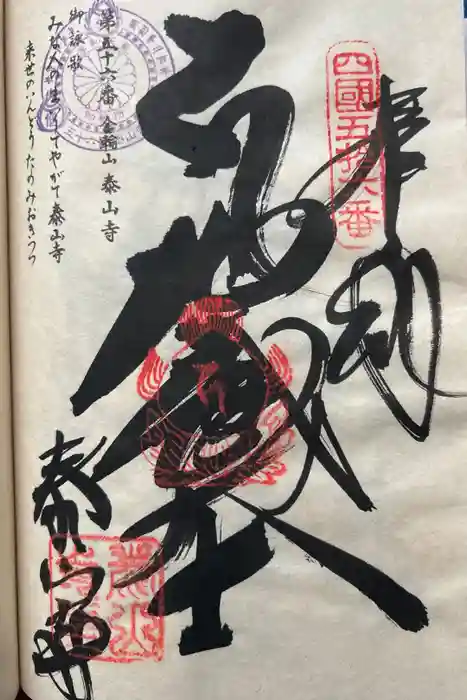 奉納
四國五拾六番
地蔵大士
泰山寺
第五十六番 金輪山 泰山寺
御詠歌
みな人の詣りてやがて泰山寺
来世のいんどうたのみおきつつ